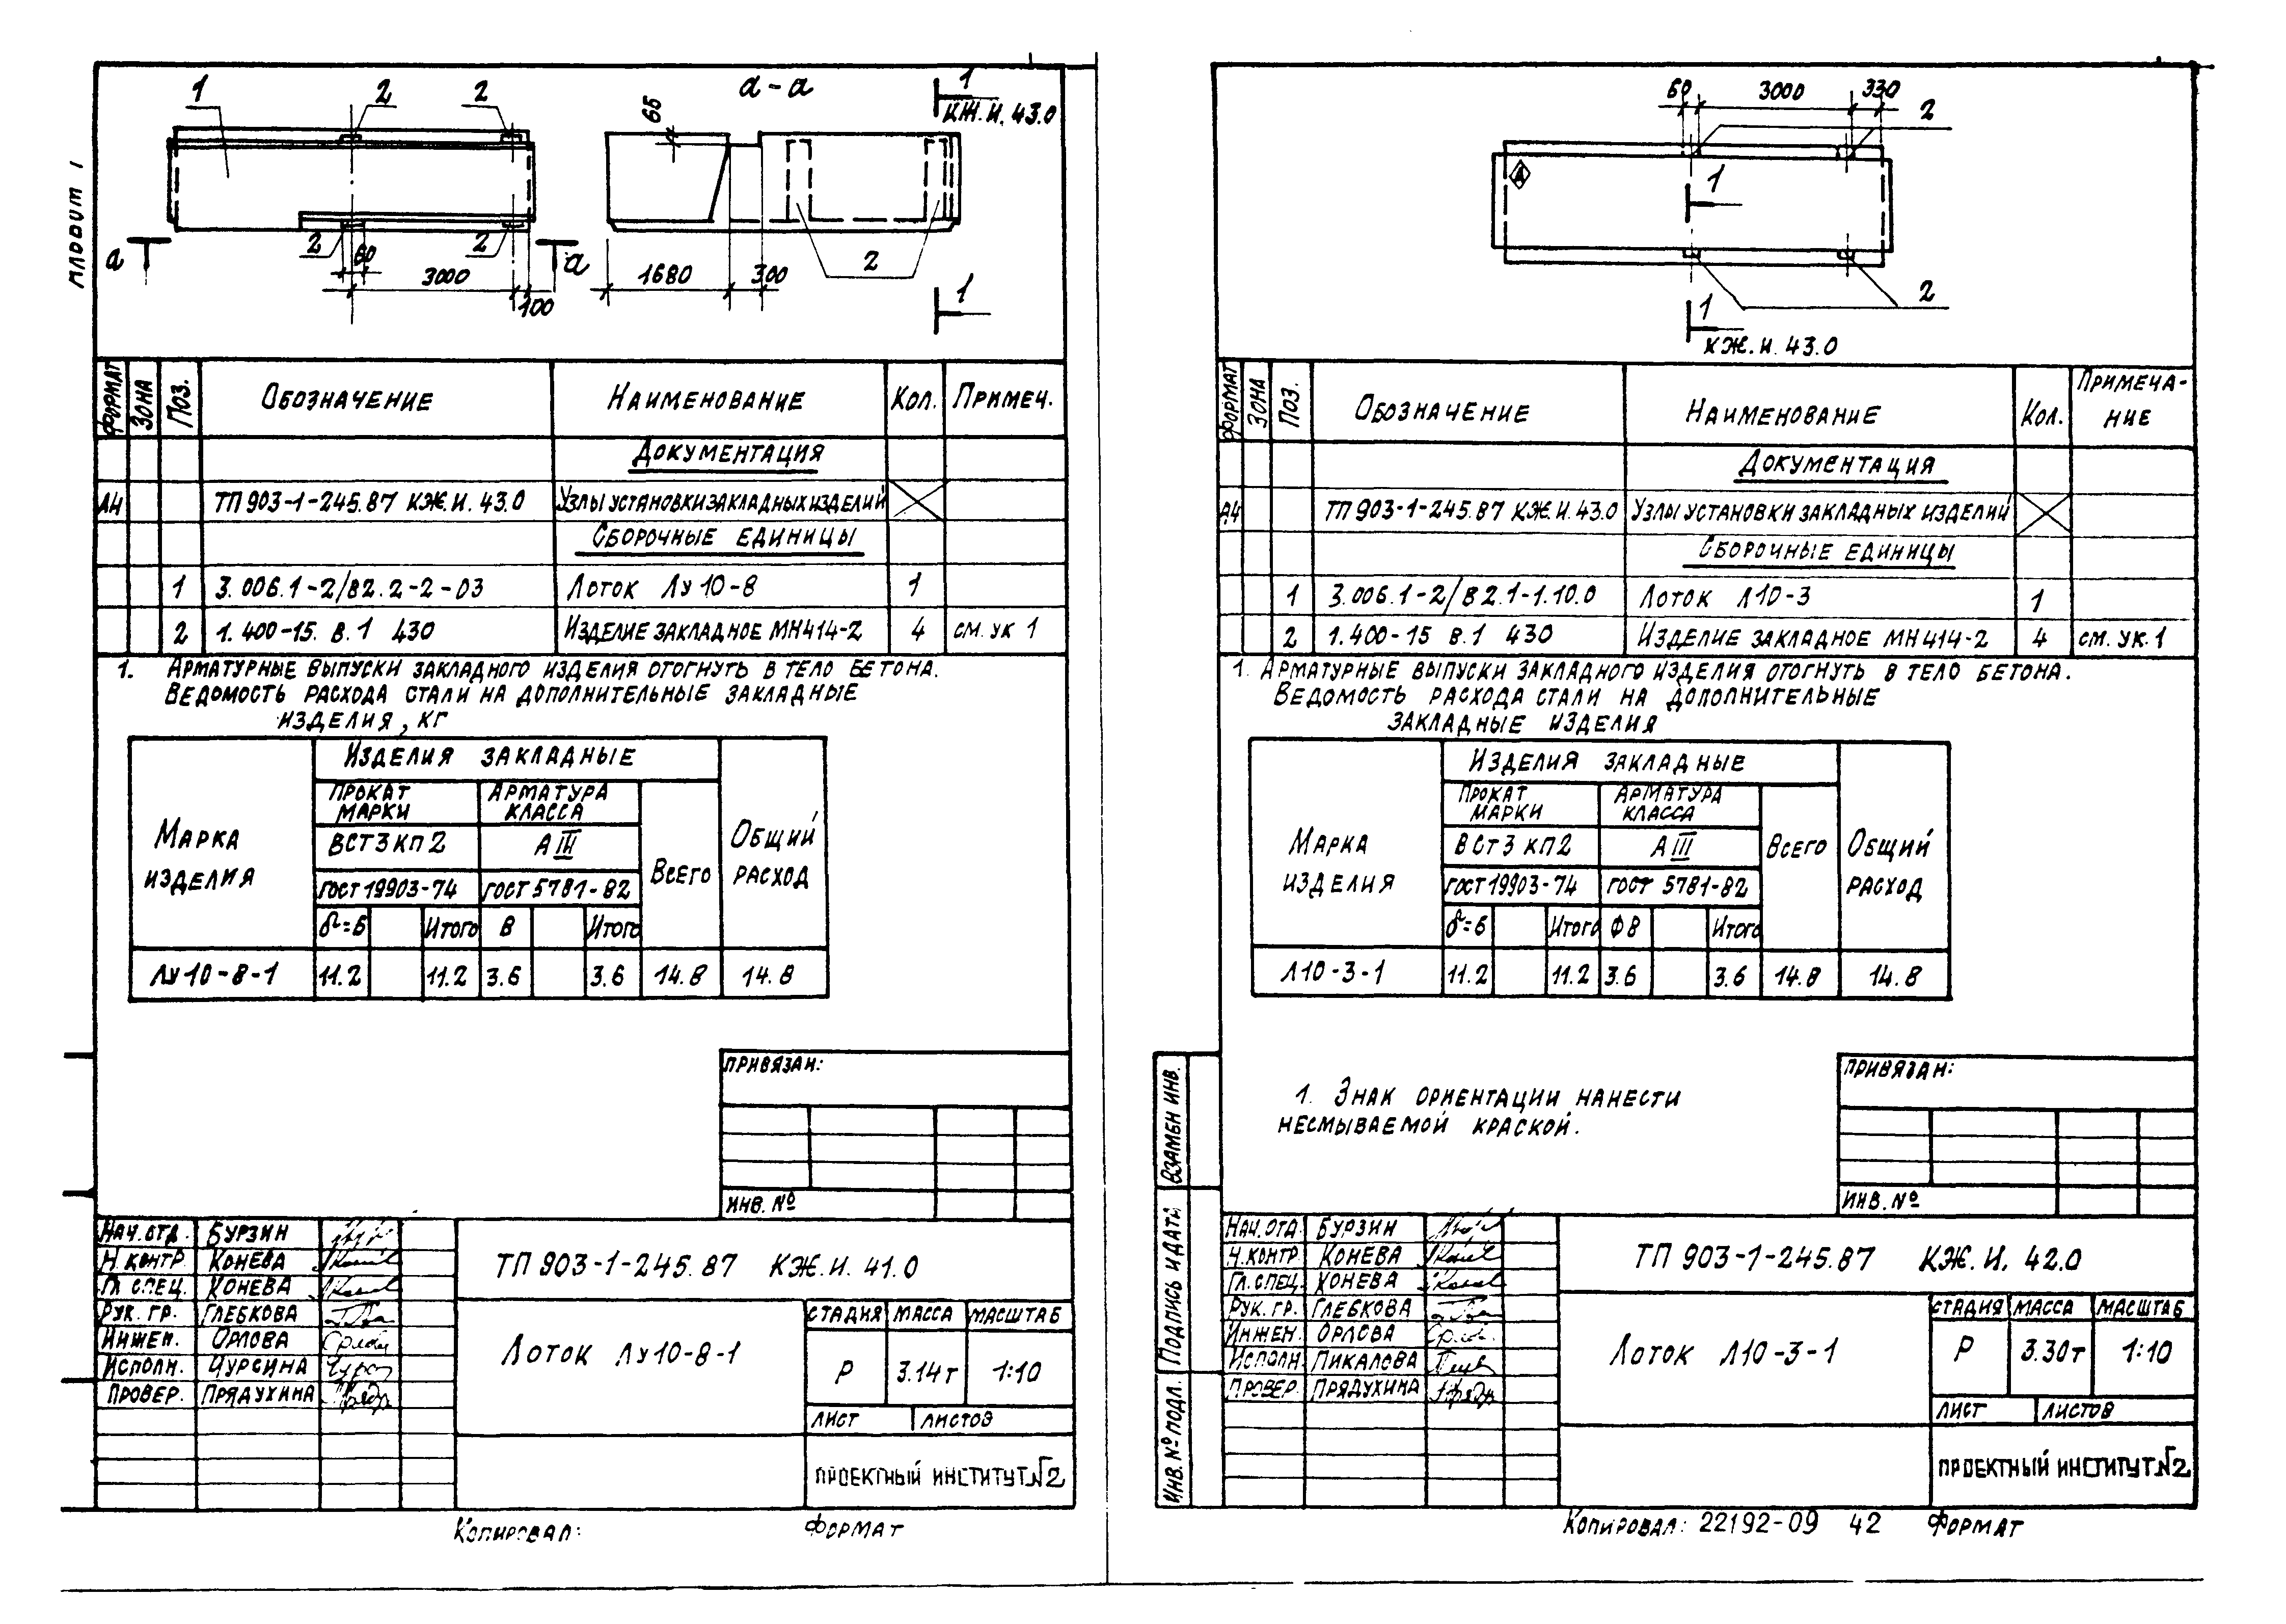 Альбом 1
1
2
2
а-а
1
КЖ.И. 43.0
65
2
60
2
а
а
3000
100
1680
300
2
1
Формат
Зона
Поз.
Обозначение
Наименование
Кол.
Примеч.
Документация
А4 ТП 903-1-245.87 КЖ.И. 43.0 Узлы установки закладных изделий
Сборочные единицы
1 3.006.1-2/82.2-2-03 Лоток Лу 10-8 1
2 1.400-15. В.1 430 Изделие закладное МН414-2 4 см. ук 1
1. Арматурные выпуски закладного изделия отогнуть в тело бетона.
Ведомость расхода стали на дополнительные закладные
изделия, кг
Марка изделия
Изделия закладные
Общий расход
Прокат марки
Арматура класса
Всего
ВСт3кп2
АIII
ГОСТ 19903-74
ГОСТ 5781-82
δ=6 Итого 8 Итого
Лу 10-8-1 11.2 11.2 3.6 3.6 14.8 14.8
Привязан:
Инв. №
Нач. отд. Бурзин
Н. контр. Конева
Гл. спец. Конева
Рук. гр. Глебкова
Инжен. Орлова
Исполн. Чурсина
Провер. Прядухина
ТП 903-1-245.87 КЖ.И. 41.0
Лоток Лу10-8-1
Стадия Масса Масштаб
Р 3.14т 1:10
Лист Листов
Проектный институт №2
Копировал:
Формат
60
3000
330
2
А
1
2
1
КЖ.И. 43.0
Формат
Зона
Поз.
Обозначение
Наименование
Кол.
Примеча-
ние
Документация
А4 ТП 903-1-245.87 КЖ.И. 43.0 Узлы установки закладных изделий
Сборочные единицы
1 3.006.1-2/82.1-1.10.0 Лоток Л10-3 1
2 1.400-15 В.1 430 Изделие закладное МН414-2 4 см. ук. 1
1. Арматурные выпуски закладного изделия отогнуть в тело бетона.
Ведомость расхода стали на дополнительные
закладные изделия
Марка изделия
Изделия закладные
Общий расход
Прокат марки
Арматура класса
Всего
ВСт3кп2
АIII
ГОСТ 19903-74
ГОСТ 5781-82
δ=6 Итого Ф8 Итого
Л10-3-1 11.2 11.2 3.6 3.6 14.8 14.8
1. Знак ориентации нанести
несмываемой краской.
Привязан:
Инв. №
Взамен инв.
Подпись и дата
Инв. № подл.
Нач. отд. Бурзин
Н. контр. Конева
Гл. спец. Конева
Рук. гр. Глебкова
Инжен. Орлова
Исполн. Пикалова
Провер. Прядухина
ТП 903-1-245.87 КЖ.И. 42.0
Лоток Л10-3-1
Стадия Масса Масштаб
Р 3.30т 1:10
Лист Листов
Проектный институт №2
Копировал: 22192-09 42 Формат